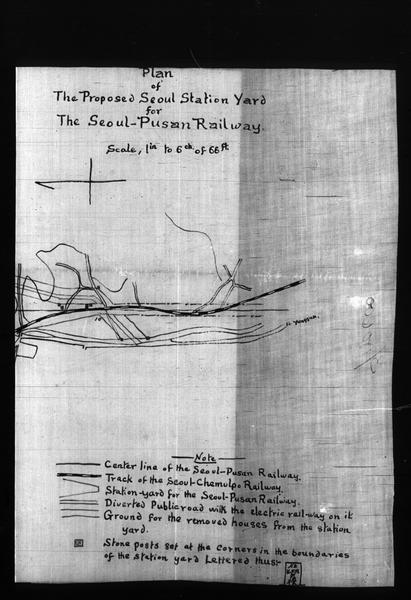 Plan
of
The Proposed Seoul Station Yard
for
The Seoul-Pusan Railway.
Scale, 1in to 6ch. of 66ft
Note
Center line of the Seoul-Pusan Railway.
Track of the Seoul-Chemulpo Railway.
Station-yard for the Seoul-Pusan Railway.
Diverted Public road with the electric rail-way on it
Ground for the removed houses from the station
yard.
Stone posts set at the corners in the boundaries
of the station yard Lettered thus:-